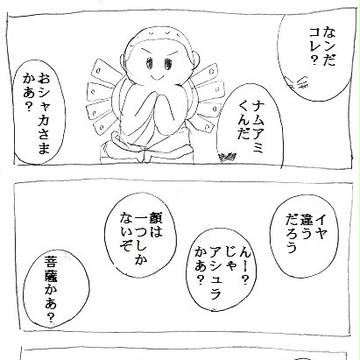 なンだ
コレ?
ナムアミ
くんだ
おシャカさま
かあ?
イヤ
違う
だろう
んー?
じゃ
アシュラ
かあ?
顔は
一つしか
ないぞ
菩薩かあ?